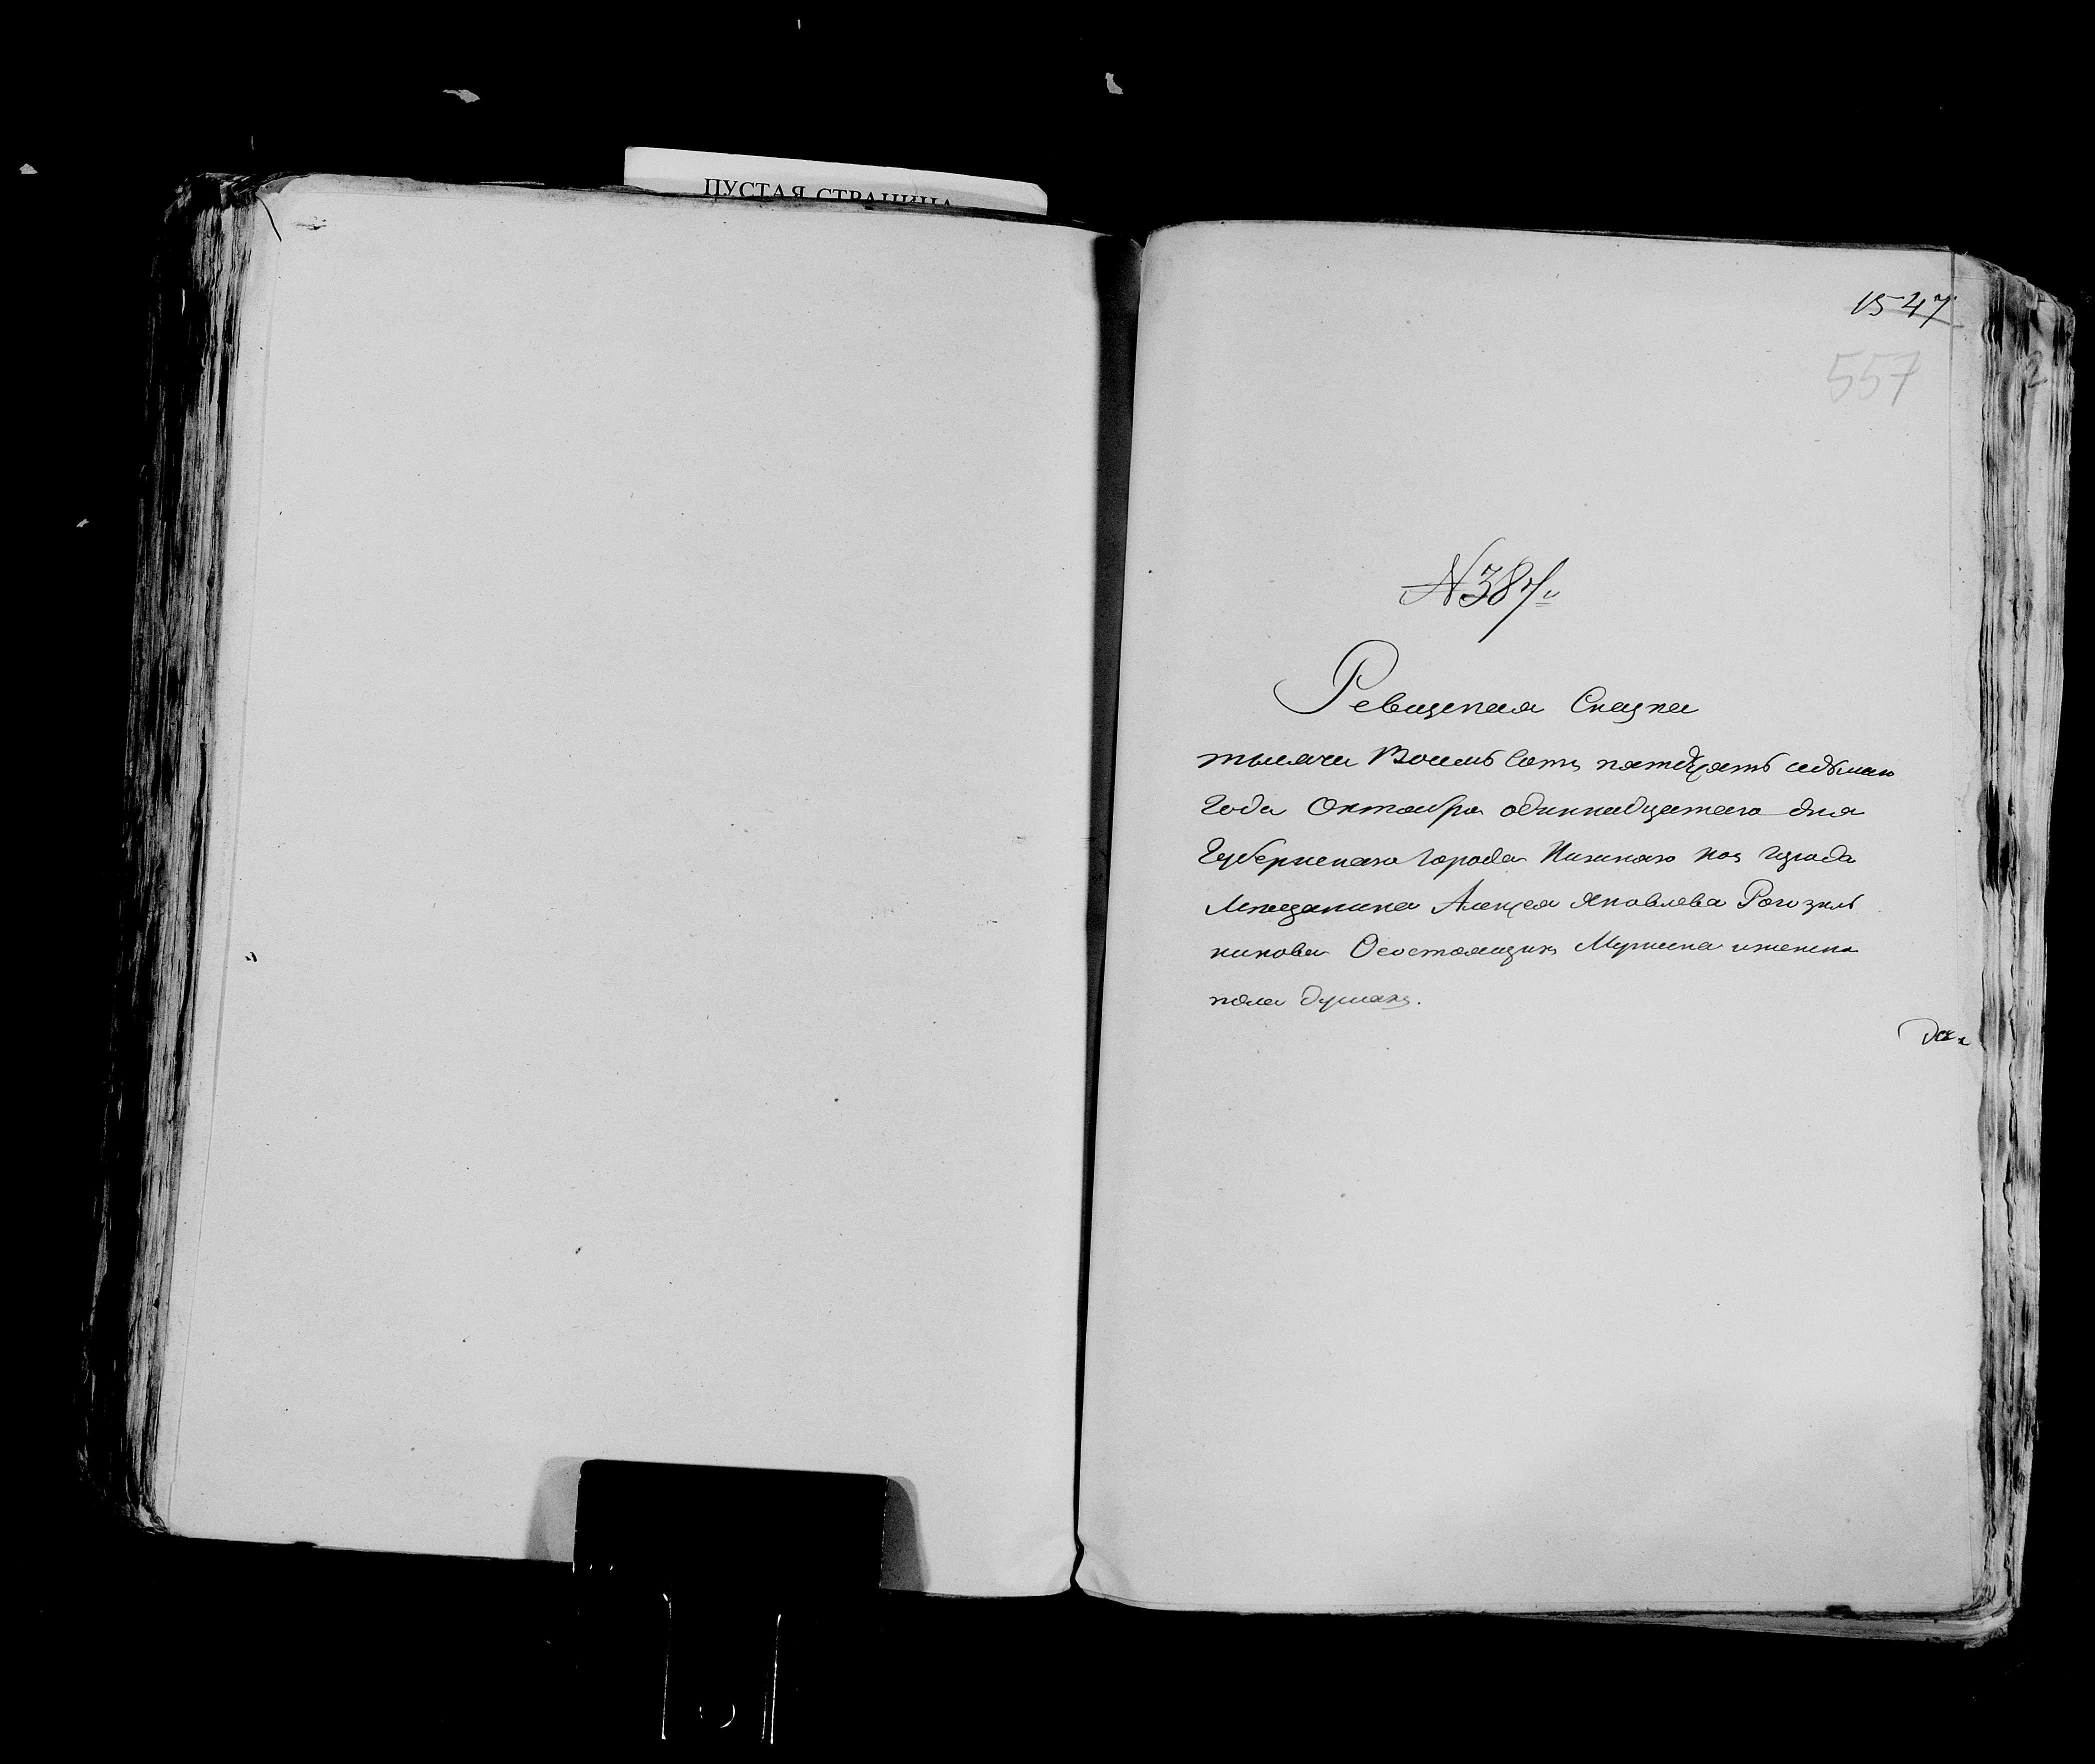 ПУСТАЯ СТРАНИЦА
1547
557
№ 387.
Ревизская Сказка
тысяча Восемь Сотъ пятдесятъ седьмаго
Года Октября одиннадцатаго дня
Губернскаго Города Нижняго Нов города
Мещанина Алексея Яковлева Рогозиль
никова О состоящихъ Мужеска и женска
пола душахъ.